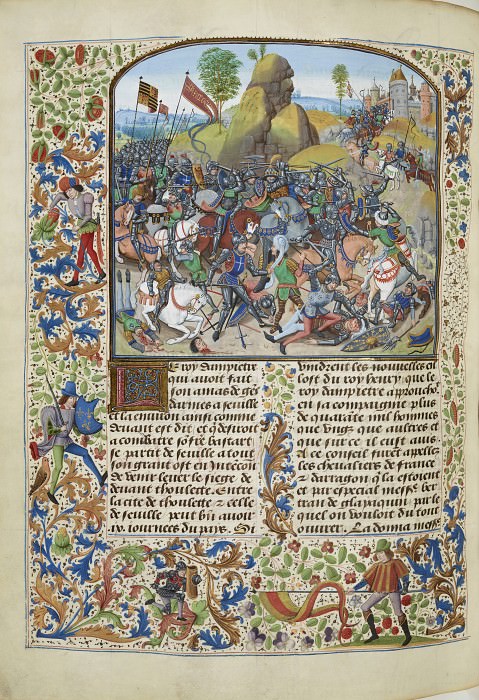 Le roy dampietre
qui avoit fait
son amas de gē
darmes a seuille
et la enuiron comme
deuant est dit et q̄ desiroit
a combatre sō fre bastart
se partit de seuille a tout
son grant ost en Intēcōn
de venir leuer le siege de
deuant thoulette. Entre
la cite de thoulette et celle
de seuille peut biē auoir
iv. Journees du pays. Si
vindrent les nouuelles en
lost du roy henry que le
roy dampietre approuchoit
en sa compaignie plus
de quarāte mil hommes
que vngs que aultres et
que sur ce il eust auis.
A ce conseil furēt appelez
les cheualiers de france
et darragon q̄ la estoient
et par especial messe ber
tran de glaiquin. par le
quel on vouloit du tout
ouurer. La donna messe